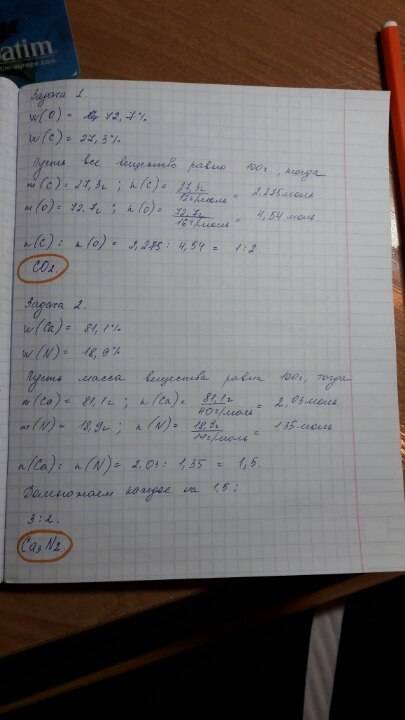 atim
Задача 1.
w(O) = 72,7%
w(C) = 27,3%
Пусть все вещество равно 100г, тогда
m(C) = 27,3г ; n(C) = 27,3г / 12г/моль = 2,275 моль
m(O) = 72,7г ; n(O) = 72,7г / 16г/моль = 4,54 моль
n(C) : n(O) = 2,275 : 4,54 = 1:2
CO2.
Задача 2.
w(Ca) = 81,1%
w(N) = 18,9%
Пусть масса вещества равна 100г, тогда
m(Ca) = 81,1г ; n(Ca) = 81,1г / 40г/моль = 2,03 моль
m(N) = 18,9г ; n(N) = 18,9г / 14г/моль = 1,35 моль
n(Ca) : n(N) = 2,03 : 1,35 = 1,5.
Домножаем каждое на 1,5 :
3:2.
Ca3N2.